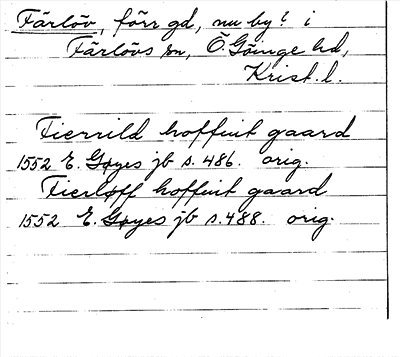 Färlöv, förr gd, nu by? i
Färlövs sn, Ö. Göinge hd,
Krist. l.
Fierrild hoffuit gaard
1552 E. Gøyes jb s. 486. orig.
Fierløff hoffuit gaard
1552 E. Gøyes jb s. 488. orig.